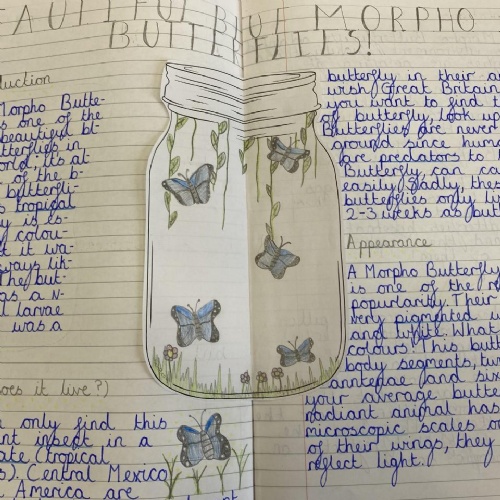 BEAUTIFUL BLUE MORPHO
BUTTERFLIES!
duction
Morpho Butte-
s one of the
beautiful bl-
tterflies in
orld. its at
of the b-
butterfli-
s tropical
y is es-
colou-
t it wa-
ways lik-
The but-
as a N-
l larvae
was a
oes it live?)
e only find this
nt insect in a
ate (tropical
s). Central Mexico
America are
butterfly in their ar
wish Great Britain
you want to find t
of butterfly, look up
Butterflies are never
ground since huma
are predators to
Butterfly can ca
easily. Sadly, the
butterflies only li
2-3 weeks as but
Appearance
A Morpho Butterfly
is one of the
popularity. Their
very pigmented
and white. What
colours! This butt
body segments, tw
anntepae and six
your average butte
radiant animal has
microscopic scales o
of their wings, they
reflect light.